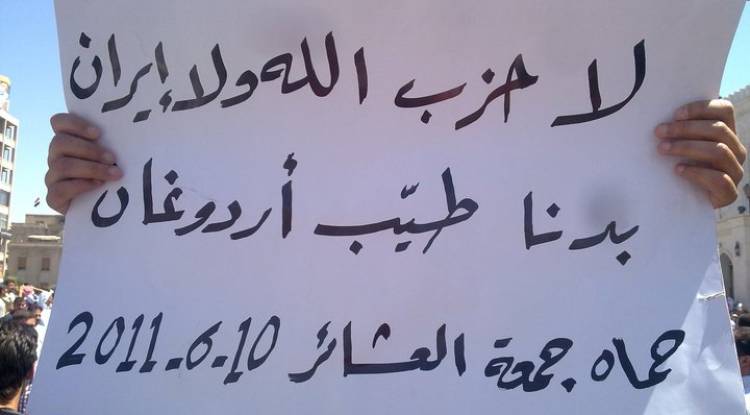 لا حزب الله ولا إيران
بدنا طيّب أردوغان
حماه جمعة العشائر 10-6-2011